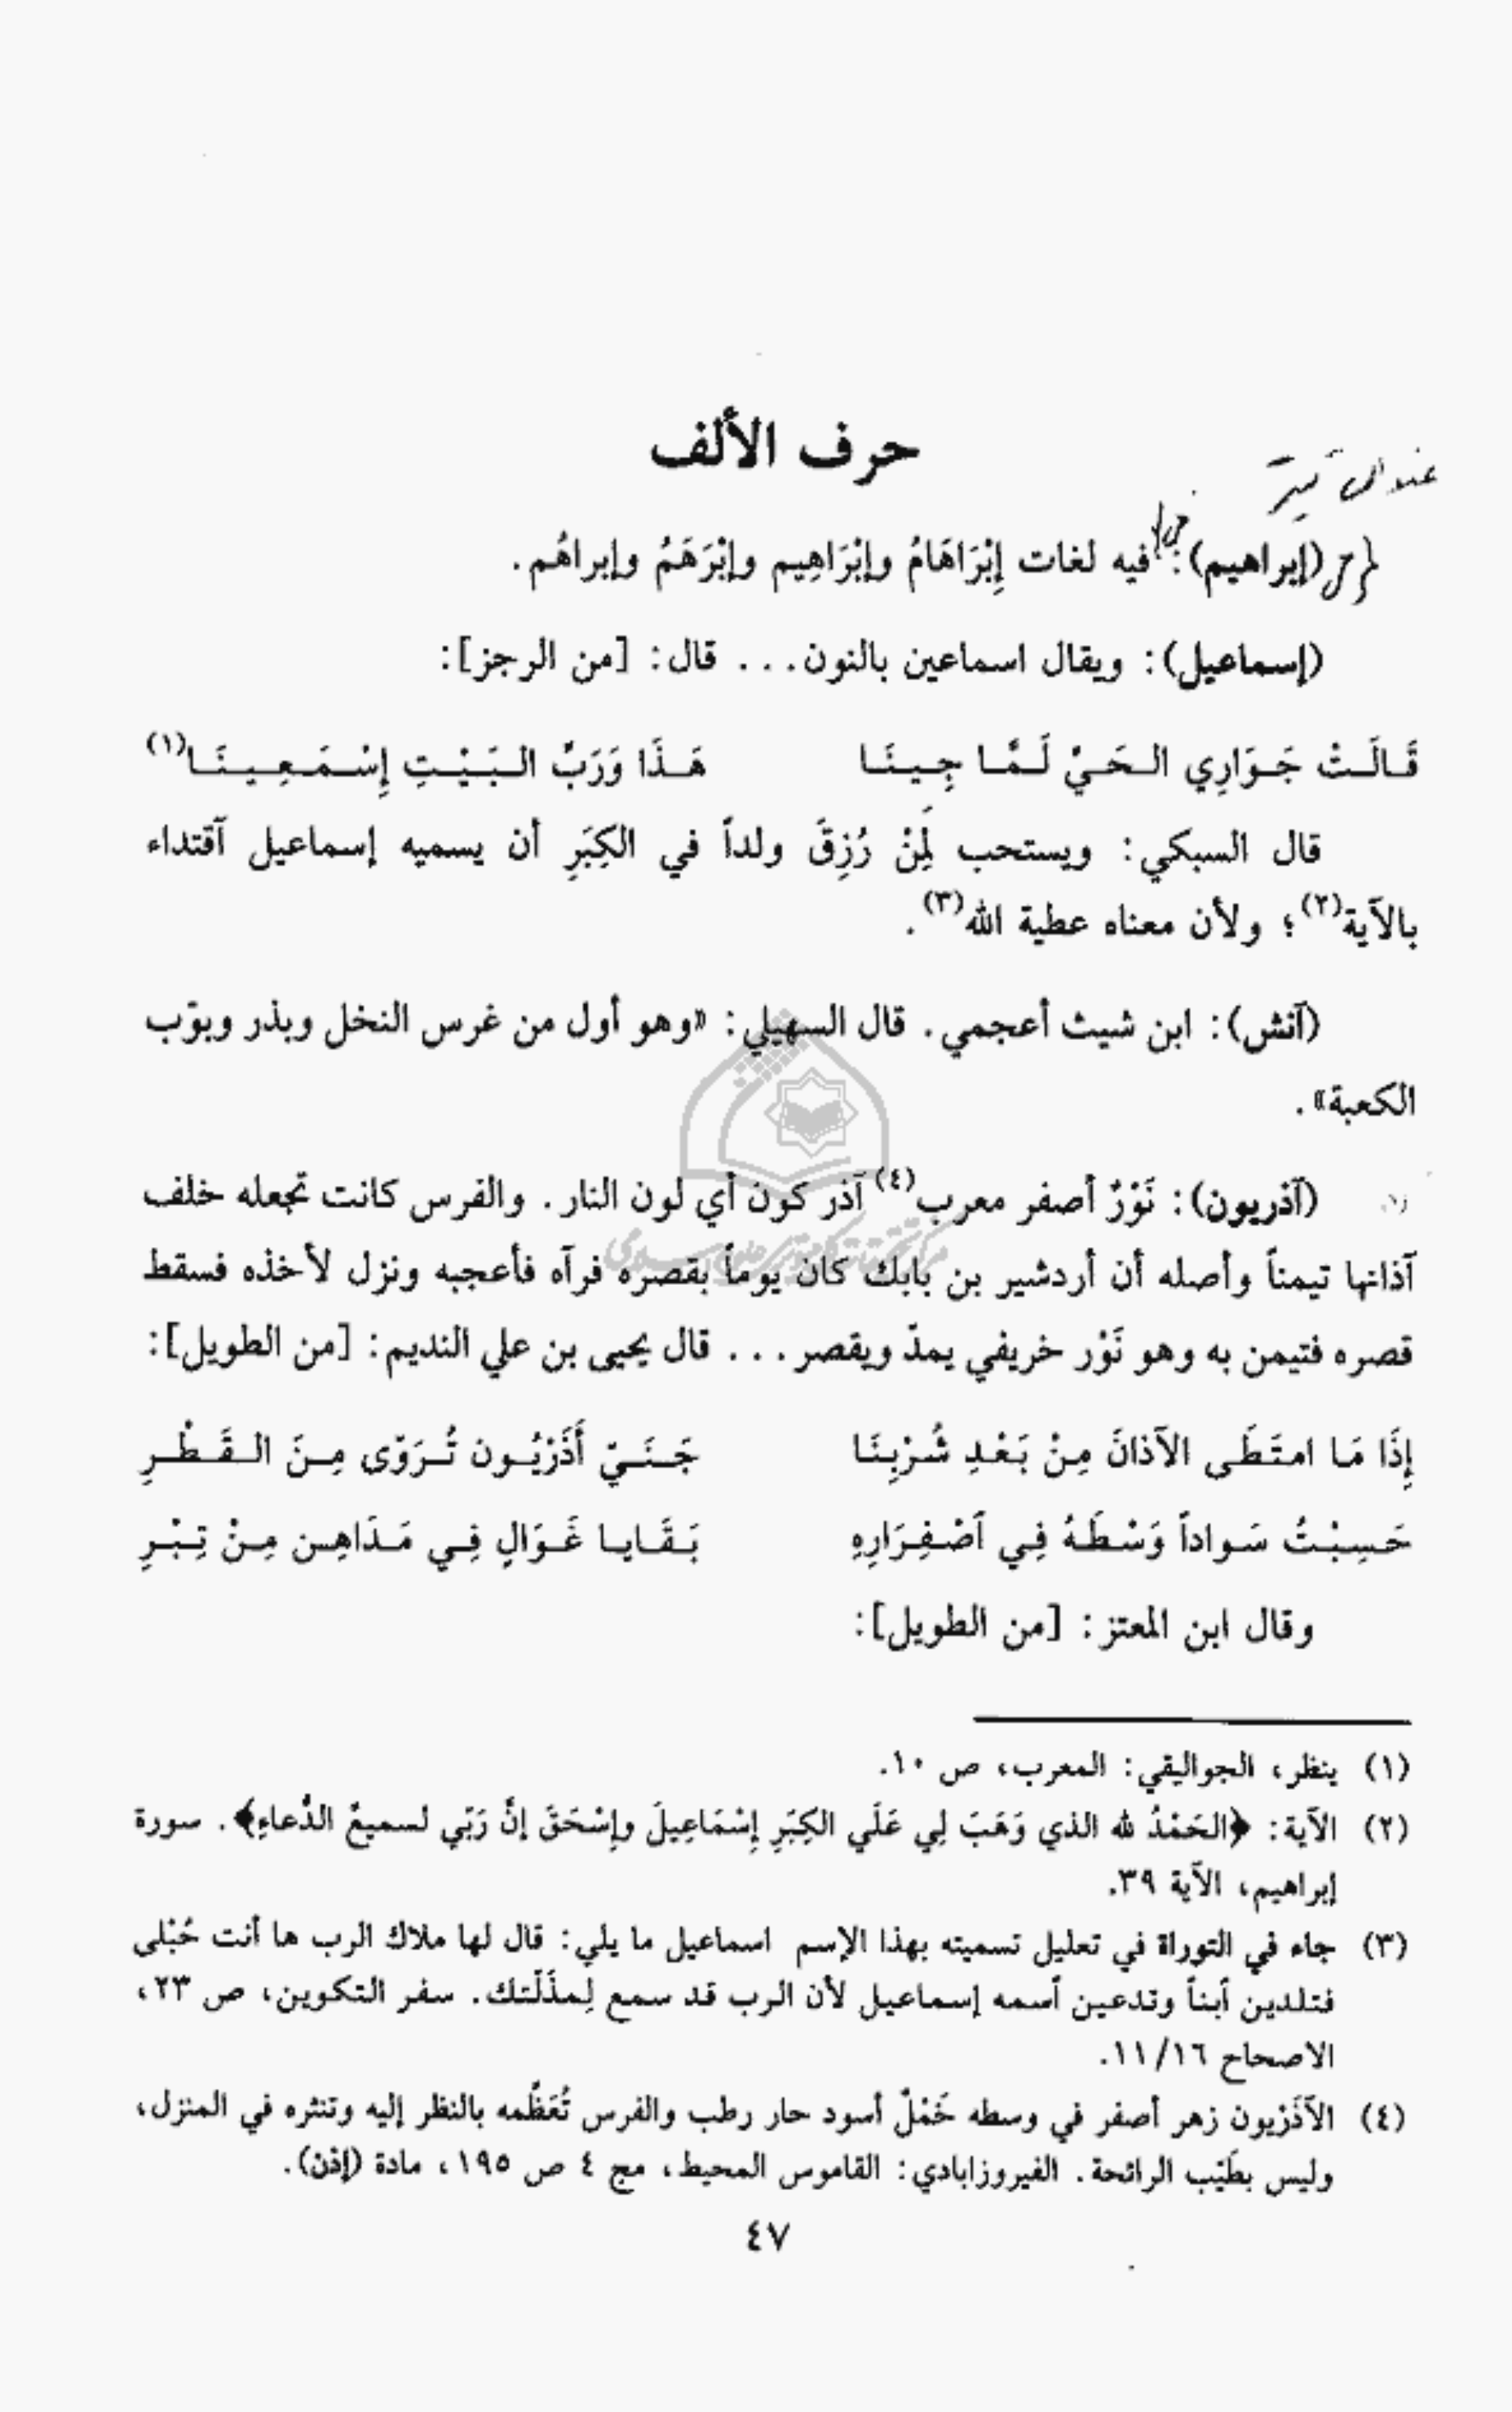 حرف الألف
(إبراهيم): فيه لغات إِبْرَاهَامُ وإبْرَاهِيم وإبْرَهَمُ وإبراهُم.
(إسماعيل): ويقال اسماعين بالنون... قال: [من الرجز]:
قَالَتْ جَوَارِي الحَيِّ لَمَّا جِينَا هَذَا وَرَبِّ البَيْتِ إِسْمَعِينَا(١)
قال السبكي: ويستحب لِمَنْ رُزِقَ ولداً في الكِبَرِ أن يسميه إسماعيل آقتداء
بالآية(٢)؛ ولأن معناه عطية الله(٣).
(آنش): ابن شيث أعجمي. قال السهيلي: «وهو أول من غرس النخل وبذر وبوّب
الكعبة».
(آذريون): نَوْرٌ أصفر معرب(٤) آذر كون أي لون النار. والفرس كانت تجعله خلف
آذانها تيمناً وأصله أن أردشير بن بابك كان يوماً بقصره فرآه فأعجبه ونزل لأخذه فسقط
قصره فتيمن به وهو نَوْر خريفي يمدّ ويقصر... قال يحيى بن علي النديم: [من الطويل]:
إِذَا مَا امتَطَى الآذانَ مِنْ بَعْدِ شُرْبِنَا جَنَيّ أَذَرْيُون تُرَوّى مِنَ القَطْرِ
حَسِبْتُ سَواداً وَسْطَهُ فِي آصْفِرَارِهِ بَقَايا غَوَالٍ فِي مَدَاهِن مِنْ تِبْرِ
وقال ابن المعتز: [من الطويل]:
(١) ينظر، الجواليقي: المعرب، ص ١٠.
(٢) الآية: ﴿الحَمْدُ لله الذي وَهَبَ لِي عَلَي الكِبَرِ إِسْمَاعِيلَ وإِسْحَقَ إنَّ رَبّي لسميعُ الدُّعاءِ﴾. سورة
إبراهيم، الآية ٣٩.
(٣) جاء في التوراة في تعليل تسميته بهذا الإسم اسماعيل ما يلي: قال لها ملاك الرب ها أنت حُبْلى
فتلدين آبناً وتدعين آسمه إسماعيل لأن الرب قد سمع لِمذَلّتك. سفر التكوين، ص ٢٣،
الاصحاح ١١/١٦.
(٤) الآذَرْيون زهر أصفر في وسطه خَمْلٌ أسود حار رطب والفرس تُعَظِّمه بالنظر إليه وتنثره في المنزل،
وليس بطَيّب الرائحة. الفيروزابادي: القاموس المحيط، مج ٤ ص ١٩٥، مادة (إذْن).
٤٧